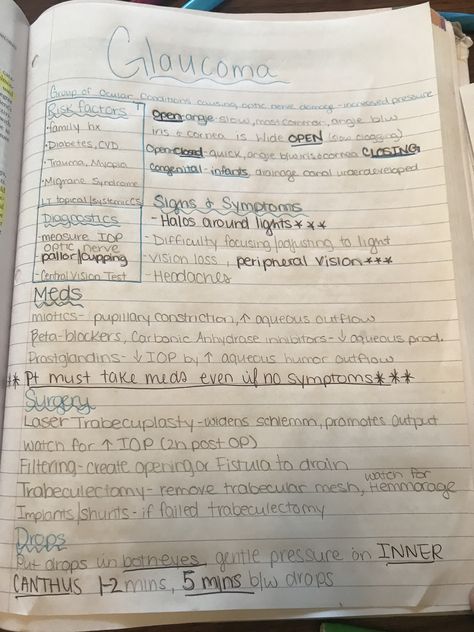 Glaucoma
Group of ocular conditions causing optic nerve damage - increased pressure
Risk factors
• family hx
• Diabetes, CVD
• Trauma, Myopia
• Migrane Syndrome
LT topical/systemic CS
Open-angle-slow, most common, angle b/w
iris & cornea is wide OPEN (slow clogging)
Open-closed-quick, angle b/w iris & cornea CLOSING
congenital - infants, drainage canal underdeveloped
Diagnostics
-measure IOP
optic nerve
-pallor/cupping
-Central Vision Test
Signs & Symptoms
-Halos around lights***
-Difficulty focusing/adjusting to light
-Vision loss, peripheral vision***
-Headaches
Meds
miotics - pupillary constriction, ↑ aqueous outflow
Beta-blockers, Carbonic Anhydrase inhibitors - ↓ aqueous prod.
Prostiglandins - ↓ IOP by ↑ aqueous humor outflow
** Pt must take meds even if no symptoms***
Surgery
Laser Trabecuplasty - widens schlemm, promotes output
watch for ↑ IOP (2h post OP)
Filtering - create opening or Fistula to drain
Trabeculectomy - remove trabecular mesh, watch for Hemmorage
Implants/shunts - if failed trabeculectomy
Drops
Put drops in both eyes gentle pressure on INNER
CANTHUS 1-2 mins, 5 mins b/w drops